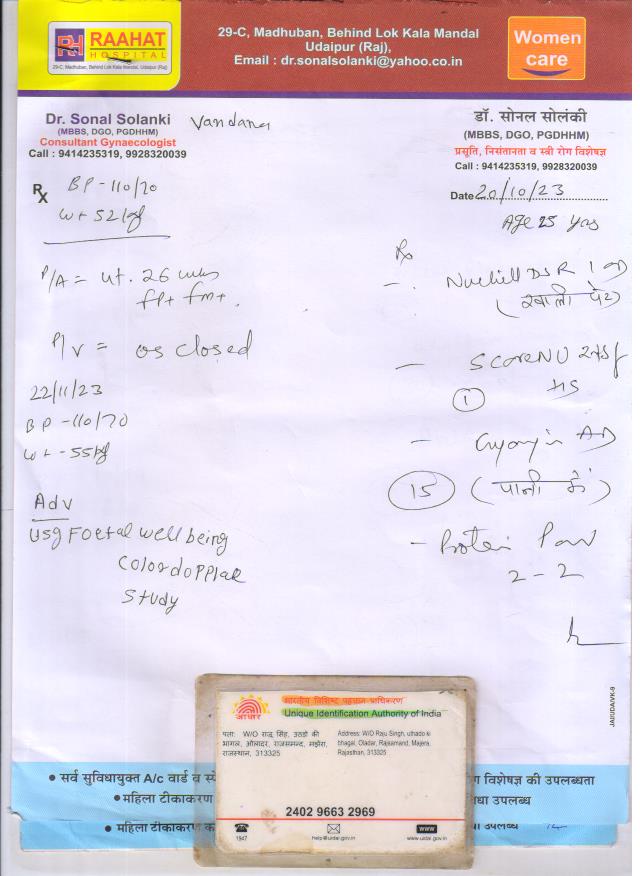 RH RAAHAT
HOSPITAL
29-C, Madhuban, Behind Lok Kala Mandal, Udaipur (Raj)
29-C, Madhuban, Behind Lok Kala Mandal
Udaipur (Raj),
Email : dr.sonalsolanki@yahoo.co.in
Women
care
Dr. Sonal Solanki
(MBBS, DGO, PGDHHM)
Consultant Gynaecologist
Call : 9414235319, 9928320039
Vandana
डॉ. सोनल सोलंकी
(MBBS, DGO, PGDHHM)
प्रसूति, निसंतानता व स्त्री रोग विशेषज्ञ
Call : 9414235319, 9928320039
Date 20/10/23
Age 25 yrs
Rx
BP - 110/70
wt 52 kg
P/A = ut. 26 wks
FP+ fm+.
P/V = os closed
22/11/23
BP - 110/70
wt - 55kg
Adv
USG Foetal well being
Color dopplar
Study
Rx
- DSR 1 OD
(खाली पेट)
-
HS
1
- AD
15 (पानी में)
- Protein Pow
2 - 2
JAI/UDAI/VK-9
आधार
भारतीय विशिष्ट पहचान प्राधिकरण
Unique Identification Authority of India
पता: W/O राजू सिंह, उठडो की
भागल, ओलादर, राजसमन्द, मझेरा,
राजस्थान, 313325
Address: W/O Raju Singh, uthado ki
bhagal, Oladar, Rajsamand, Majera,
Rajasthan, 313325
2402 9663 2969
1947
help@uidai.gov.in
www
www.uidai.gov.in
• सर्व सुविधायुक्त A/c वार्ड व
रोग विशेषज्ञ की उपलब्धता
• महिला टीकाकरण
उपलब्ध
• महिला टीकाकरण
उपलब्ध